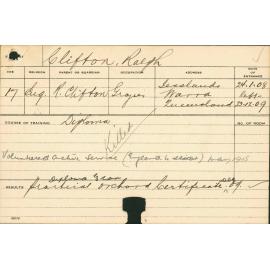 Clifton, Ralph
AGE RELIGION PARENT OR GUARDIAN OCCUPATION ADDRESS DATE OF ENTRANCE
17 Eng. R. Clifton Grazier Jesslands 24.1.08
Warra Left
Queensland 23.12.09
COURSE OF TRAINING Diploma NO. OF ROOM
Killed
Volunteered Active Service May 1915
Diploma Exam
RESULTS Practical Orchard Certificate Dec 09.